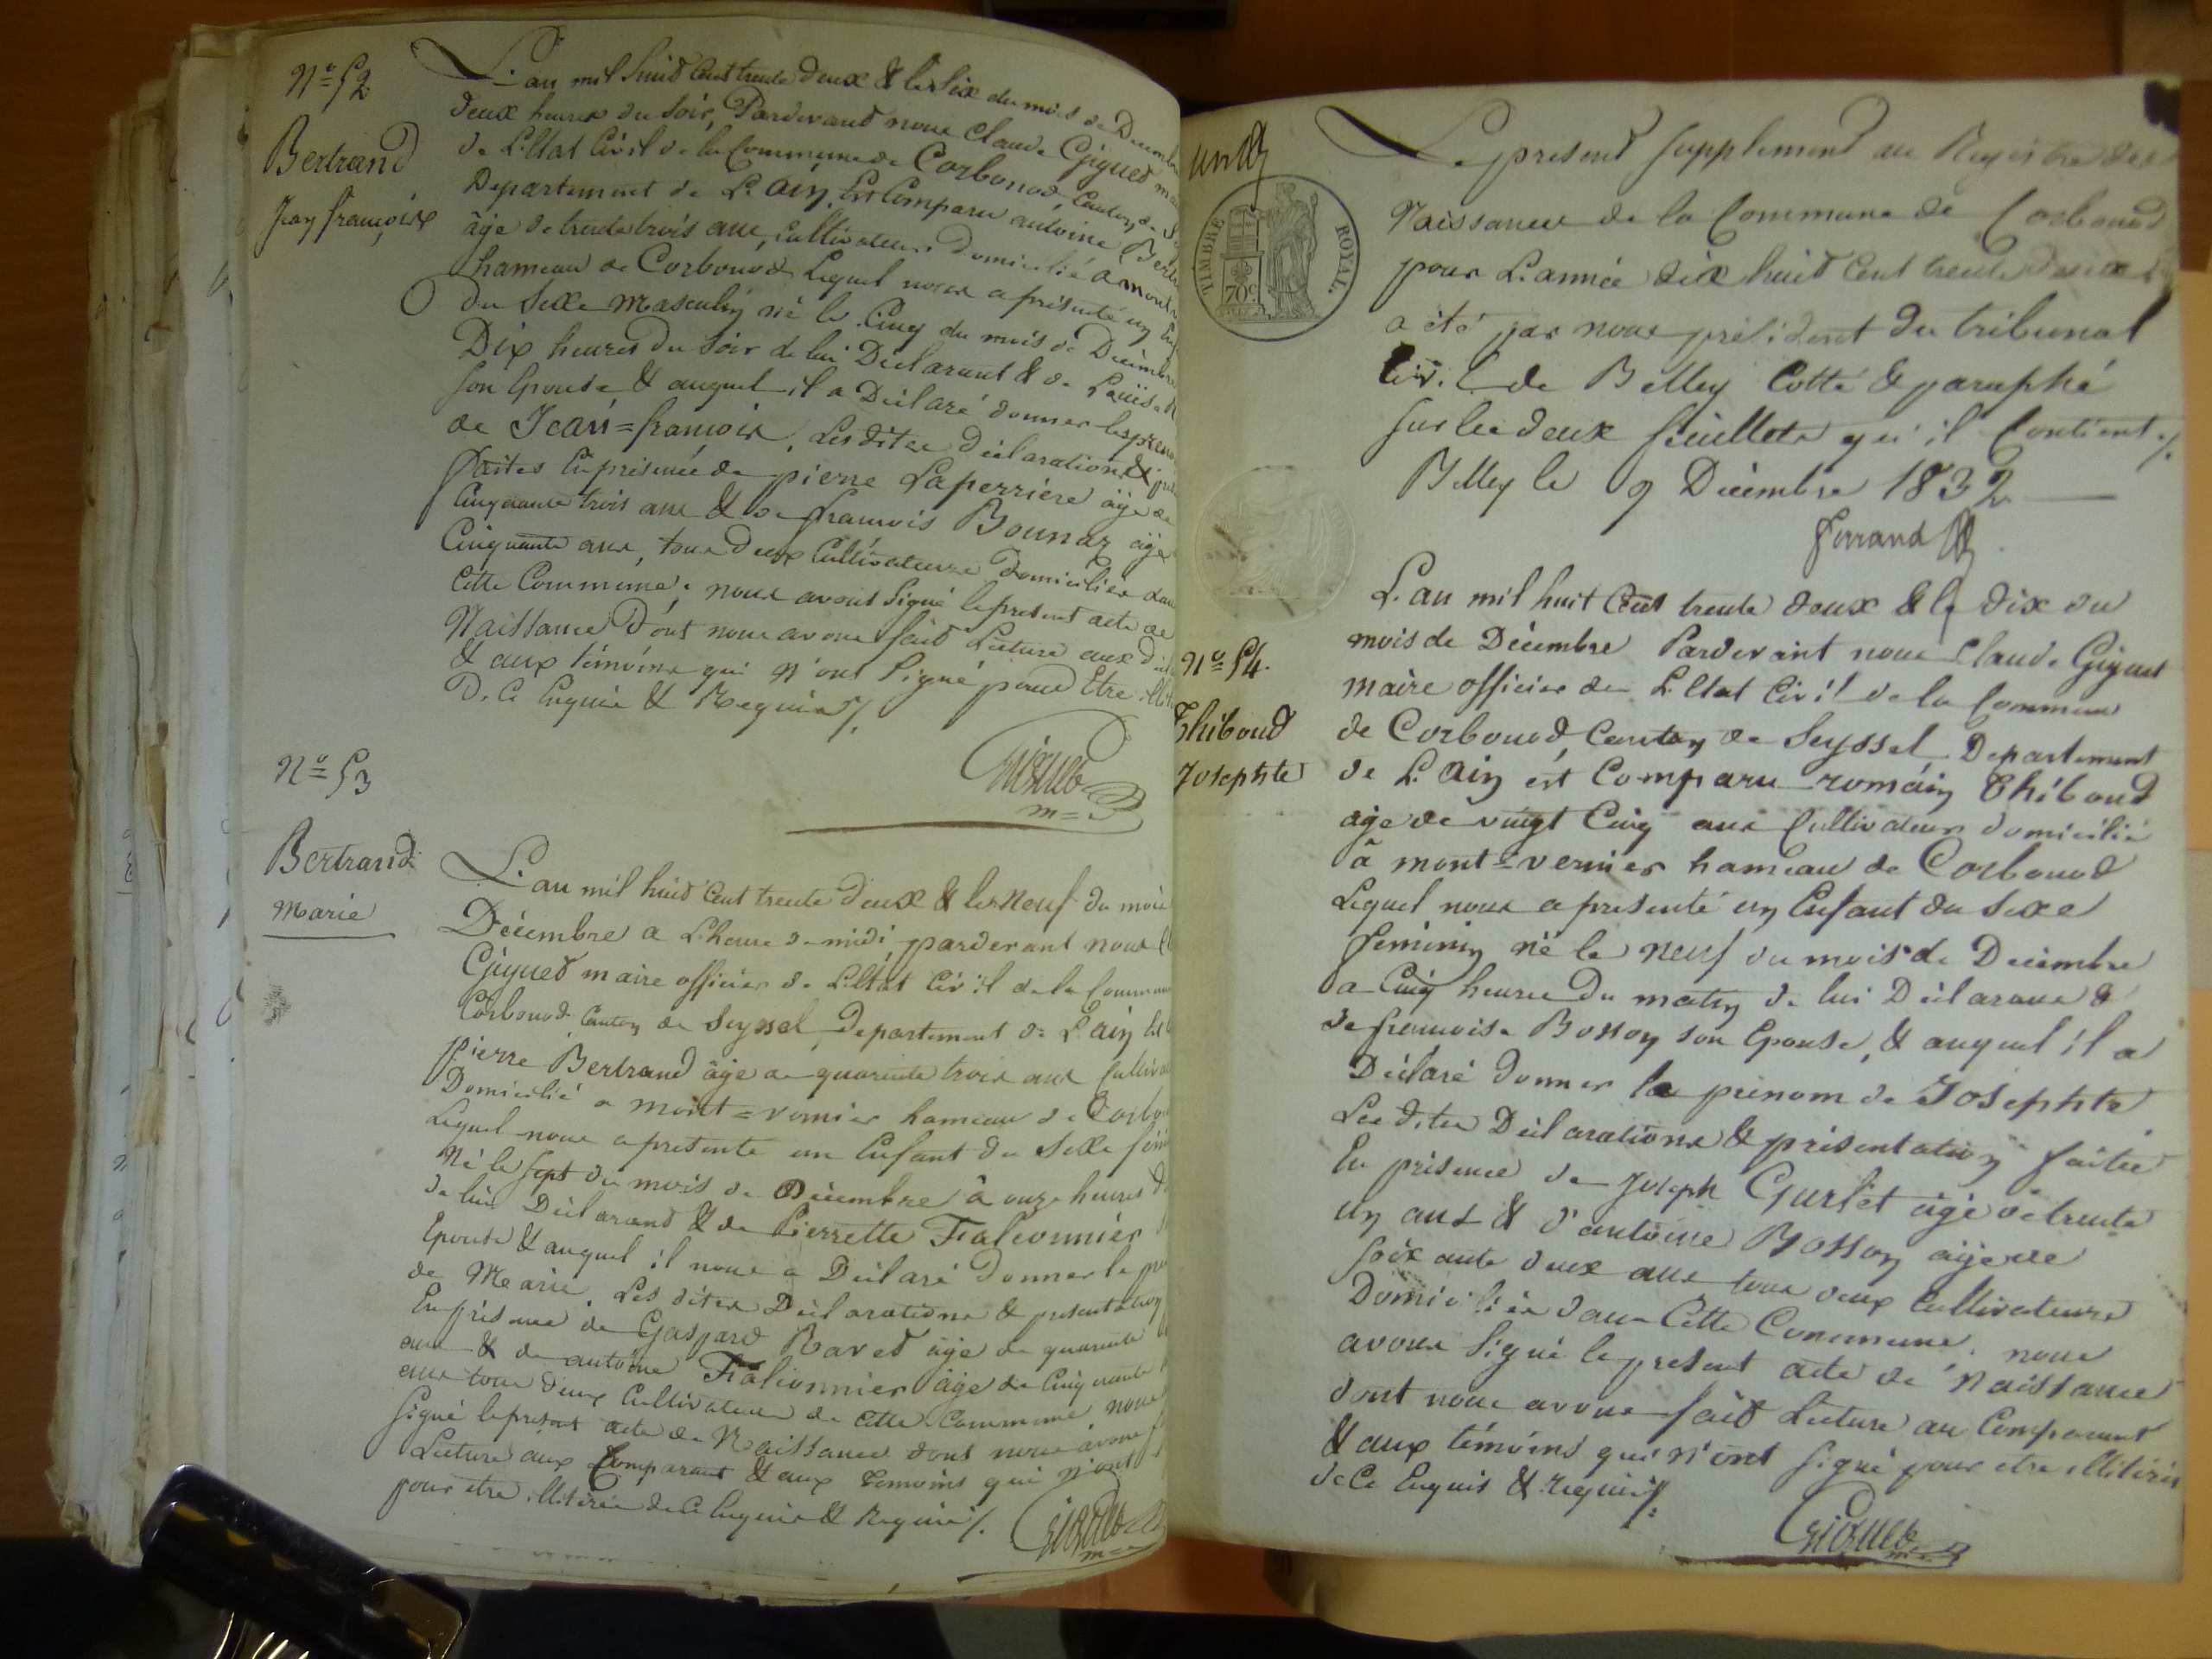 N.º 52
Bertrand
Jean françois
L'an mil huit Cent trente deux & le Six du mois de Décembre
deux heures du Soir, Pardevant nous Claude Giguet
de L'Etat Civil de la Commune de Corbonod, Canton de
Departement de L'Ain, Est Comparu antoine
âgé de trente trois ans, Cultivateur Domicilié à
hameau de Corbonod, Lequel nous a présenté un
du Sexe Masculin né le Cinq du mois de Décembre
Dix heures du Soir de lui Déclarant & de Louise
son Epouse & auquel il a Déclaré donner les
de Jean=françois, Les dites déclaration &
faites En présence de pierre Laperrière âgé de
Cinquante trois ans & de françois Bounaz âgé
Cinquante ans, tous deux Cultivateurs Domiciliés
Cette Commune, nous avons signé le present acte de
Naissance d'ont nous avons fait Lecture aux
& aux témoins qui N'ont Signé pour Etre
D. Ce Enquis & Requis/.
Giguet
m=
N.º 53
Bertrand
Marie
L'an mil huit Cent trente deux & le Neuf du mois
Décembre a L'heure de midi pardevant nous
Giguet maire officier de L'Etat Civil de la
Corbonod, Canton de Seyssel, Departement de L'Ain
pierre Bertrand âgé de quarante trois ans
Domicilié a mont=vernier hameau de
Lequel nous a présenté un Enfant du Sexe
Né le sept du mois de Décembre à onze heures
de lui Déclarant & de Pierrette Falconnier
Epouse & auquel il nous a Déclaré Donner le
de Marie. Les dites Déclarations & presentation
En présence de Gaspard Ravet âgé de quarante
ans & de antoine Falconnier âgé de Cinquante
ans tous deux Cultivateurs de cette Commune nous
signé le present acte de Naissance dont nous avons
Lecture aux Comparant & aux témoins qui n'ont
pour etre illitérés de Ce Enquis & Requis/.
Giguet
m=
un
TIMBRE ROYAL.
70 C.
Le present supplement au Registre des
Naissances de la Commune de Corbonod
pour L'année dix huit Cent trente deux
a été par nous président du tribunal
Civil de Belley Cotté & paraphé
sur les deux feuillets qu'il Contient ./.
Belley le 9 Décembre 1832
Ferrand
N.º 54.
Thiboud
Josephte
L'an mil huit Cent trente deux & le dix du
mois de Décembre Pardevant nous Claude Giguet
maire officier de L'Etat Civil de la Commune
de Corbonod, Canton de Seyssel, Departement
de L'Ain est Comparu romain Thiboud
âgé de vingt Cinq ans Cultivateur domicilié
à mont=vernier hameau de Corbonod
Lequel nous a présenté un Enfant du Sexe
feminin né le neuf du mois de Décembre
a Cinq heures Du matin de lui Déclarant &
de françoise Bosson son Epouse, & auquel il a
Déclaré donner le prénom de Josephte.
Les dites Déclarations & présentation faites
En présence de Joseph Gurlet âgé de trente
un ans & d'antoine Bosson âgé de
soixante deux ans tous deux Cultivateurs
Domiciliés dans Cette Commune. nous
avons Signé le present acte de Naissance
dont nous avons fait Lecture au Comparant
& aux témoins qui N'ont signé pour etre illitérés
de Ce Enquis & requis/.
Giguet
m=